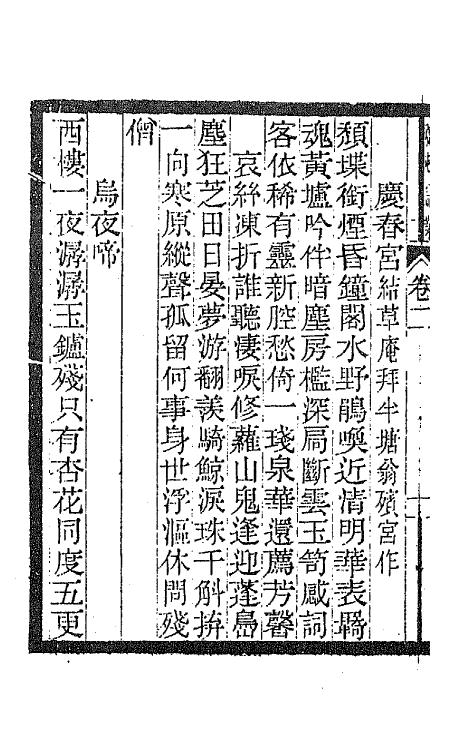 卷二
慶春宮結草庵拜半塘翁殯宮作
頽堞銜煙昏鐘閣水野鵑喚近清明華表羇
魂黃壚吟伴暗塵房檻深扃斷雲玉笥感詞
客依稀有靈新腔愁倚一琖泉華還薦芳馨
哀絲凍折誰聽悽唳修蘿山鬼逢迎蓬島
塵狂芝田日晏夢游翻羨騎鯨淚珠千斛拚
一向寒原縱聲孤留何事身世浮漚休問殘
僧
烏夜啼
西樓一夜潺潺玉鑪殘只有杏花同度五更